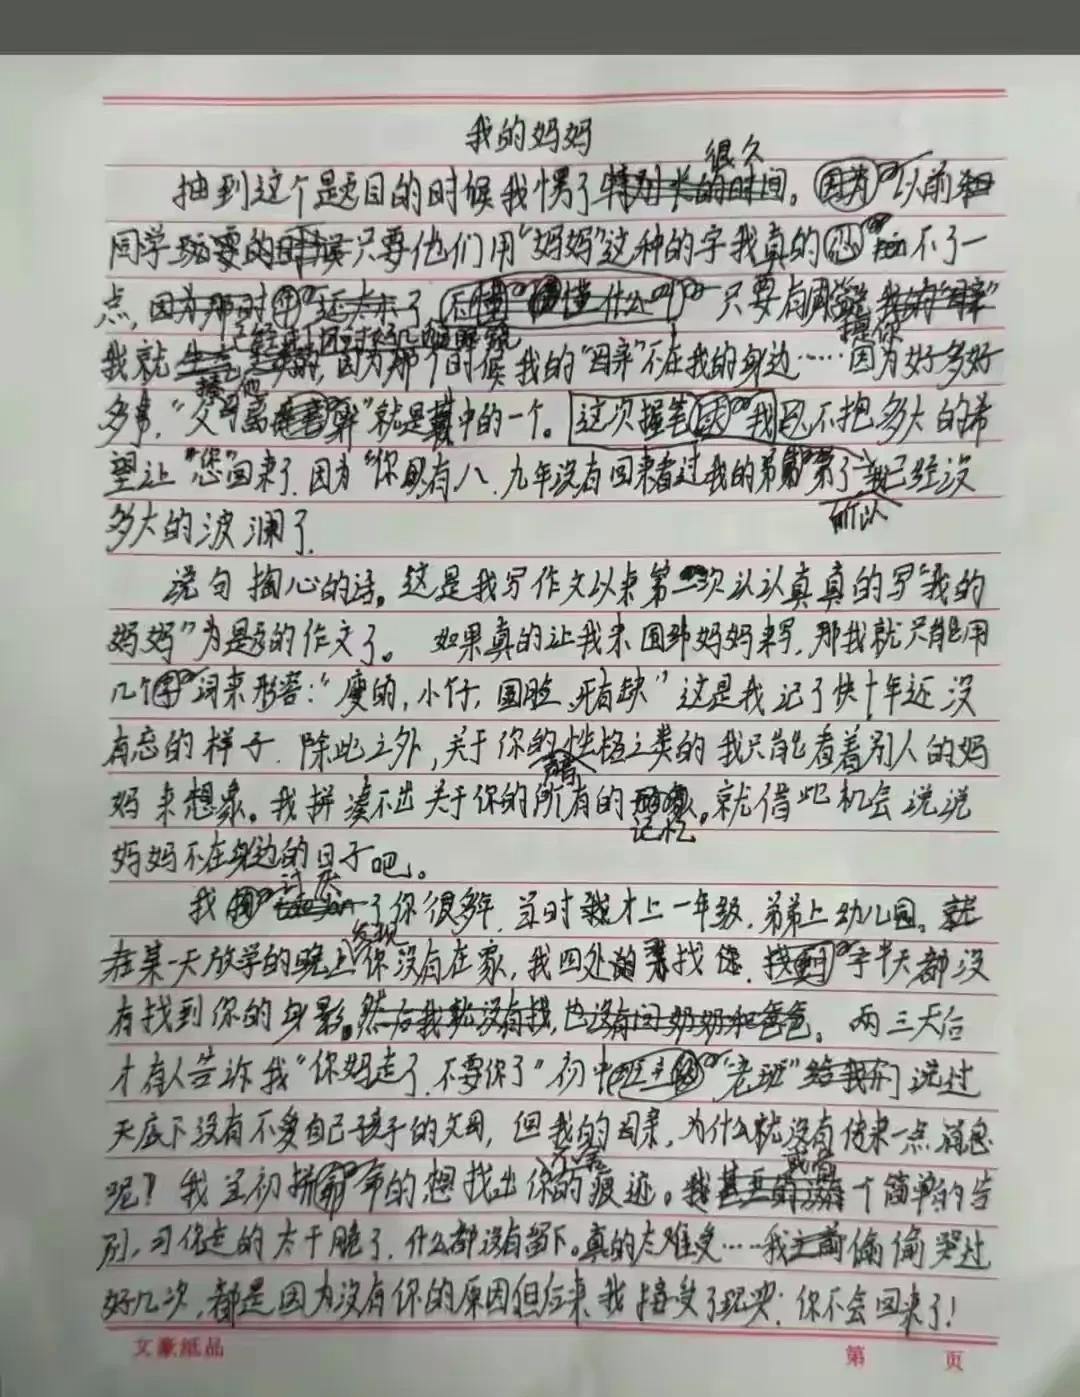 我的妈妈
很久
抽到这个题目的时候我愣了特别长的时间。因为以前和
同学玩耍的时候只要他们用"妈妈"这种的字我真的忍不了一
点,因为那时 只要有同学说我的"母亲"
我就 因为那个时候我的"母亲"不在我的身边……因为好多好
多事,"父母离 "就是其中的一个。这次握笔 我已不抱多大的希
望让"您"回来了,因为"你"已有八、九年没有回来看过我的弟弟 了我已经没
所以
多大的波澜了.
说句掏心的话,这是我写作文以来第一次认认真真的写"我的
妈妈"为题的作文了。如果真的让我来围绕妈妈来写,那我就只能用
几个字词来形容:"瘦的,小仔,圆脸,牙有缺"这是我记了快十年还没
有忘的样子.除此之外,关于你的性格之类的我只能看着别人的妈
妈来想象。我拼凑不出关于你的所有的 。就借此机会说说
记忆
妈妈不在身边的日子吧。
讨厌
我 了你很多年,当时我才上一年级,弟弟上幼儿园。就
发现
在某一天放学的晚上你没有在家,我四处的寻找你.找 半天都没
有找到你的身影。然后我就没有找,也没有问奶奶和爸爸。两三天后
才有人告诉我"你妈走了,不要你了"初中班主任"老班"给我们说过
天底下没有不爱自己孩子的父母,但我的母亲,为什么就没有传来一点消息
呢?我 拼命的想找出你的痕迹。我甚至的 个简单的告
别,可你走的太干脆了,什么都没有留下。真的太难受……我之前偷偷哭过
好几次,都是因为没有你的原因但后来我接受了现实:你不会回来了!
文豪纸品
第 页